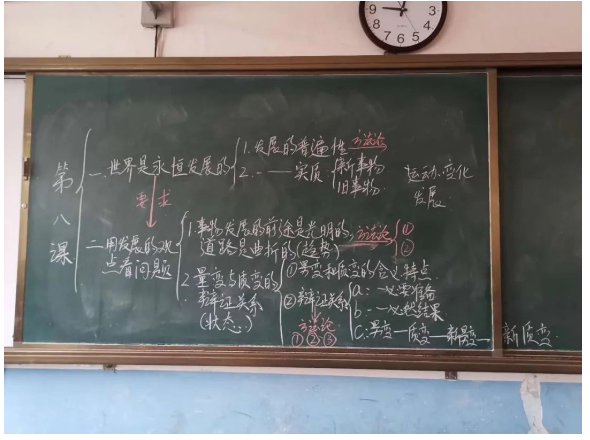 9 3
8 4
7 6 5
第八课
一.世界是永恒发展的
1.发展的普遍性 方法论
2.一一实质
新事物
旧事物
运动.变化
发展.
要求
二.用发展的观
点看问题
1.事物发展的前途是光明的,
道路是曲折的(趋势)
方法论
①
②
2.量变与质变的
辩证关系
(状态.)
①量变和质变的含义特点.
②辩证关系
a:一必要准备
b:一必然结果
C:量变一质变一新量变一新质变
方法论
①②③